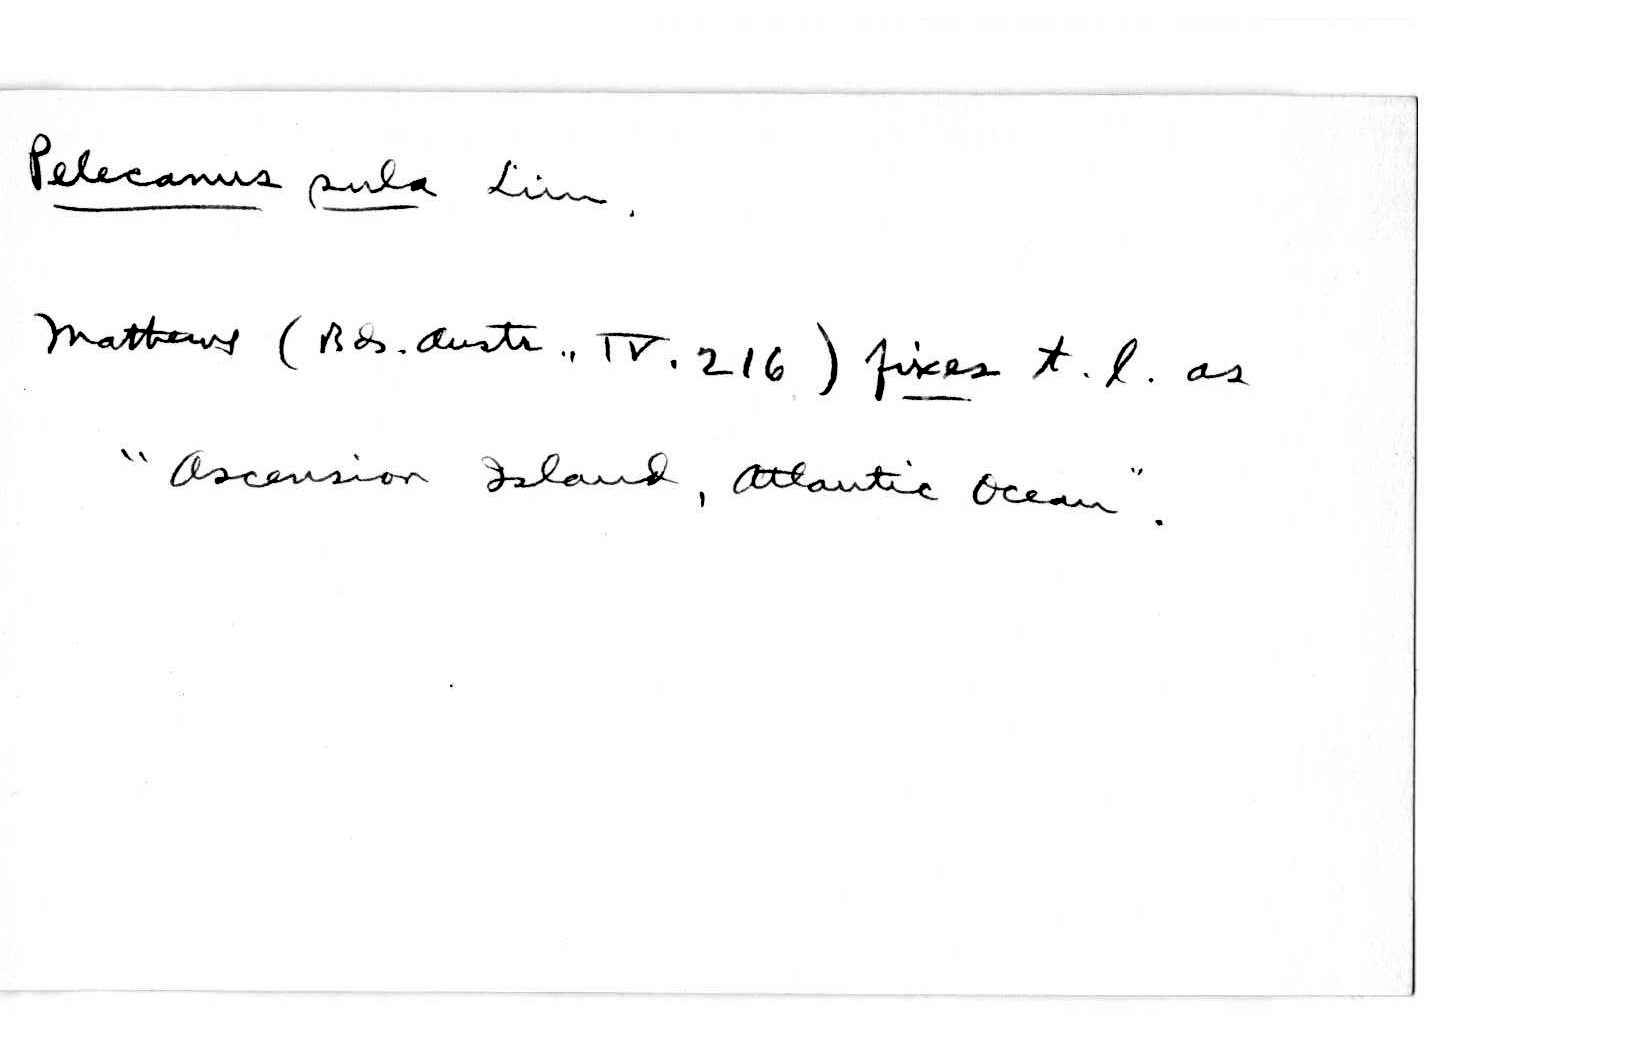 Pelecanus sula Linn.
Mathews (Bds. Austr., IV. 216) fixes t. l. as
"Ascension Island, Atlantic Ocean".